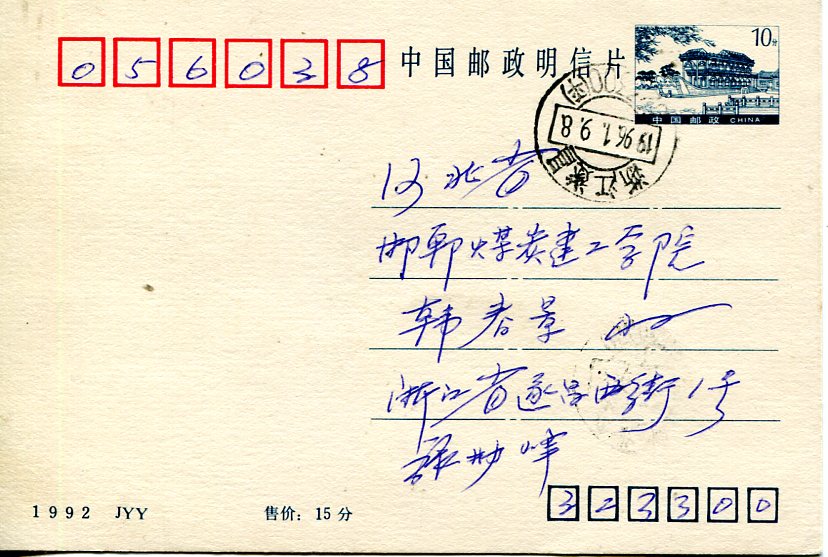 056038
中国邮政明信片
10分
中国邮政 CHINA
1996.1.9.8
浙江遂昌
河北省
邯郸煤炭建工学院
韩春景
浙江省遂昌西街1号
323300
1992 JYY
售价: 15分